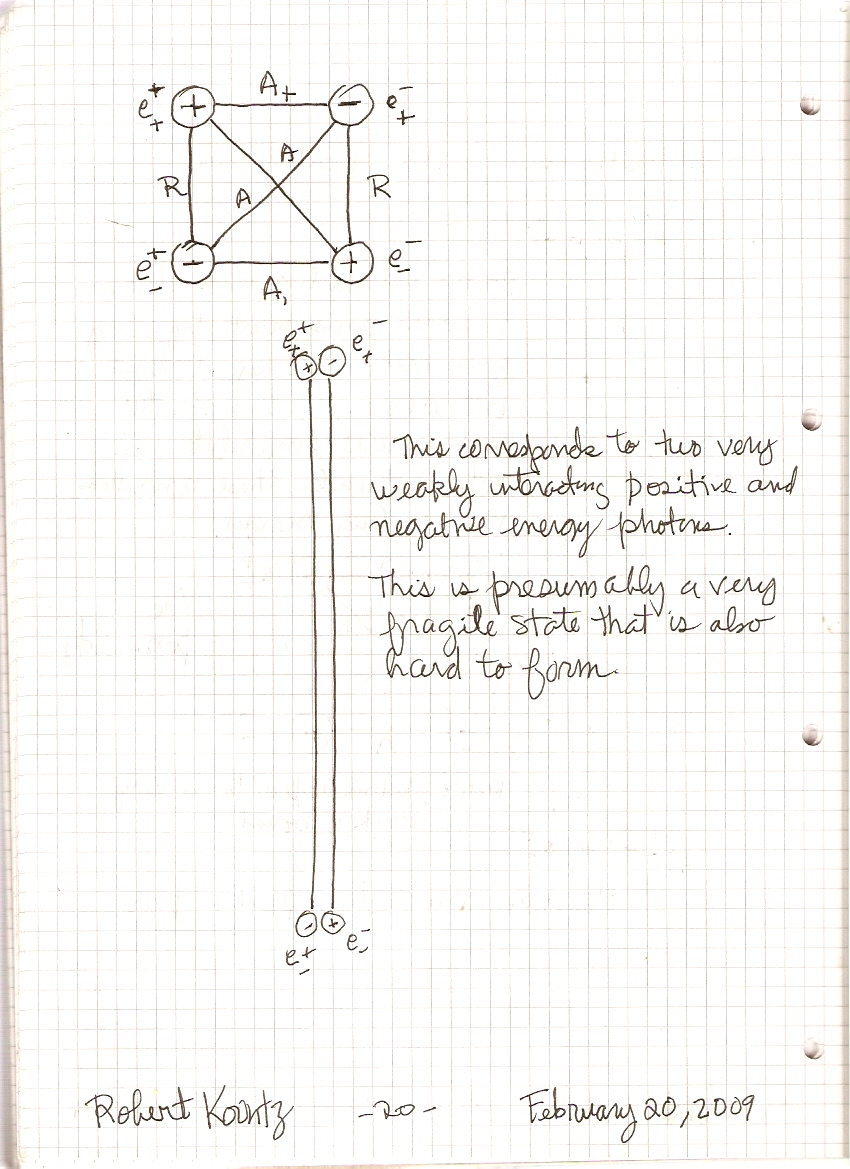 e₊⁺ + A₊ − e₊⁻
A
R A R
e₋⁺ − + e₋⁻
A,
e₊⁺ e₊⁻
+ −
This corresponds to two very
weakly interacting positive and
negative energy photons.
This is presumably a very
fragile state that is also
hard to form.
− +
e₋⁺ e₋⁻
Robert Koontz -20- February 20, 2009